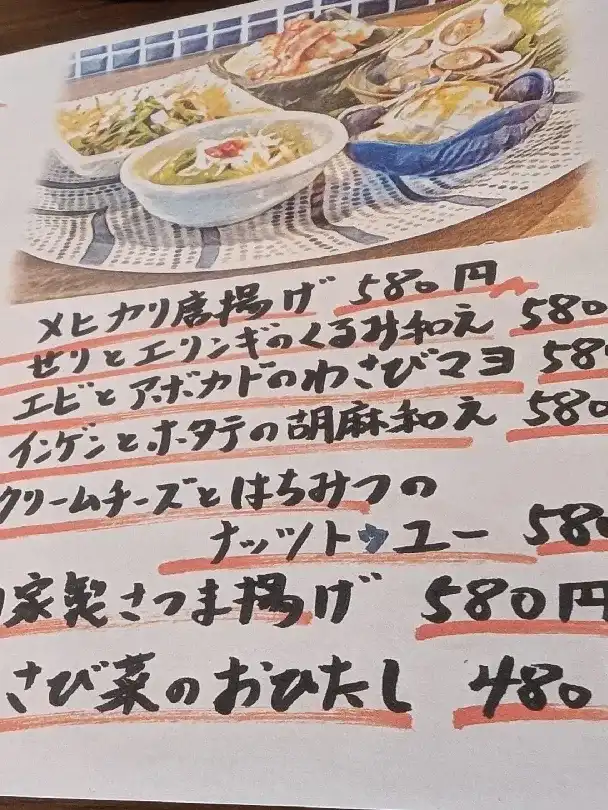 メヒカリ唐揚げ 580円
せりとエリンギのくるみ和え 580
エビとアボカドのわさびマヨ 580
インゲンとホタテの胡麻和え 580
クリームチーズとはちみつの
ナッツトゥユー 580
家製さつま揚げ 580円
さび菜のおひたし 480